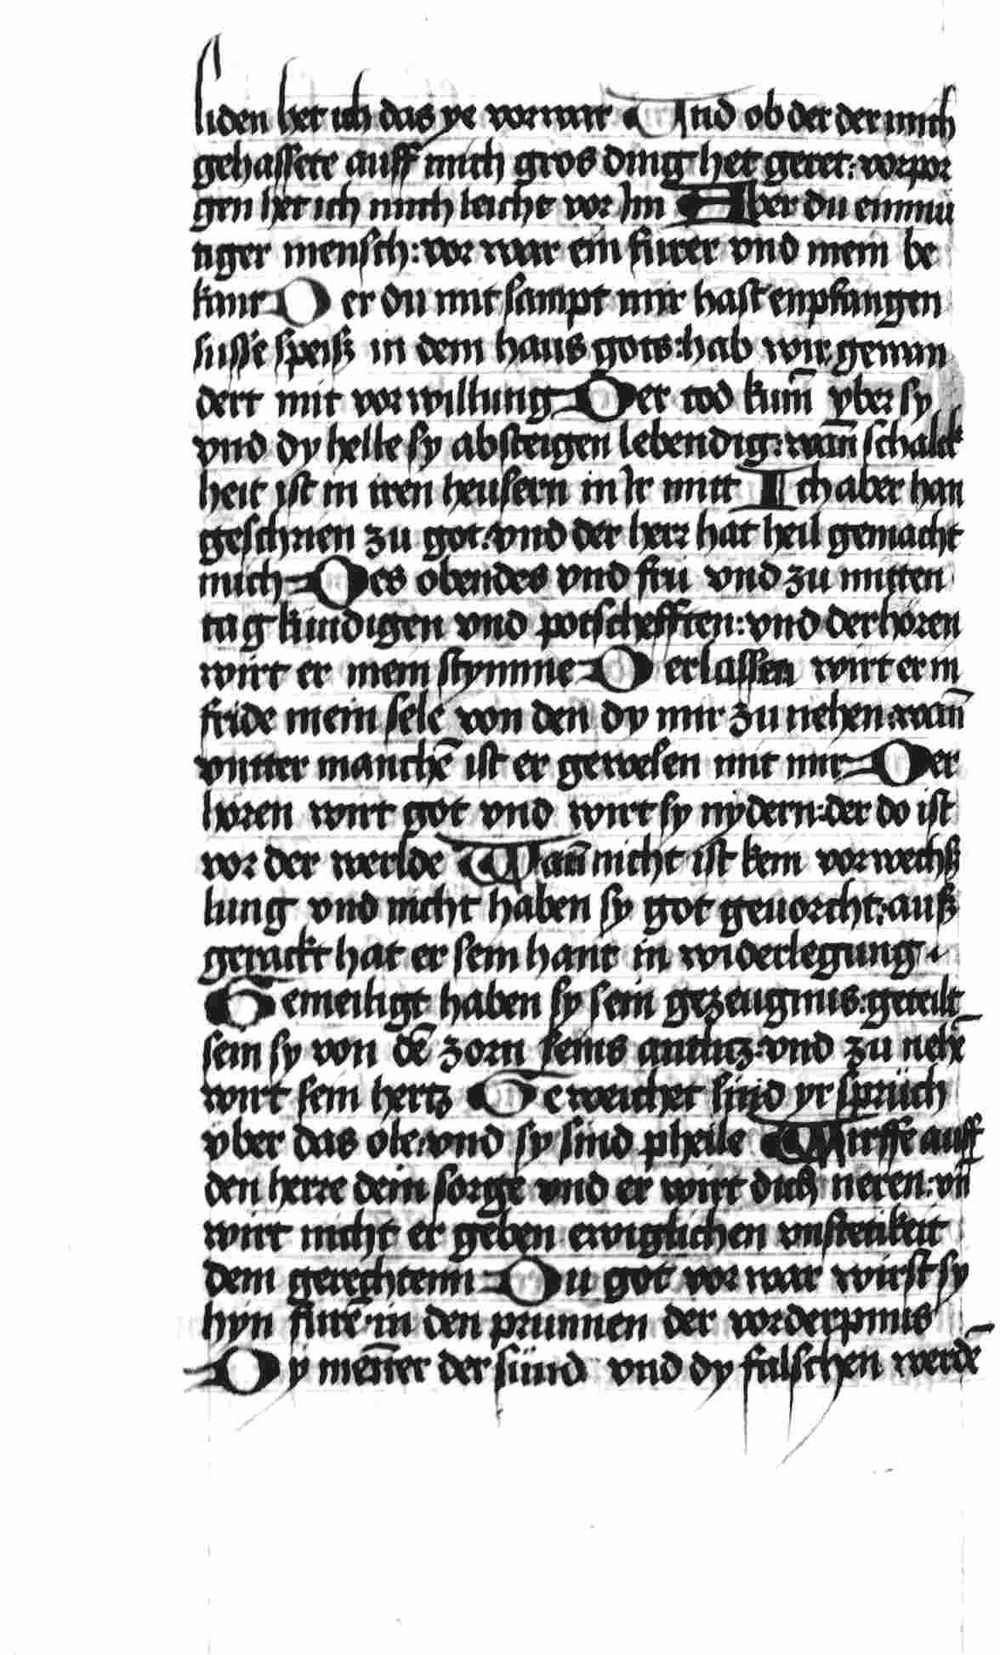 liden het ich das ye vorwar Und ob der der mich
gehassete auff mich gros ding het geret: vorpor
gen het ich mich leicht vor Im Aber du einmu
tiger mensch: vor war ein furer vnd mein be
kant Der du mit sampt mir hast enpfangen
susse speiß in dem haus gots: hab wir gewan
dert mit vorwillung Der tod kum̄ yber sy
vnd dy helle sy absteigen lebendig: wan̄ schalck
heit ist in iren heusern in Ir mitt Ich aber han
geschrien zu got: vnd der herr hat heil gemacht
mich Des obendes vnd fru vnd zu mitten
tag kundigen vnd potschefften: vnd derhoren
wirt er mein stymme Derlassen wirt er in
fride mein sele von den dy mir zu nehen: wan̄
vntter manchē ist er gewesen mit mir Der
horen wirt got vnd wirt sy nydern: der do ist
vor der werlde Wan̄ nicht ist kein vorwechß
lung vnd nicht haben sy got geuorcht: auß
gerackt hat er sein hant in widerlegung
Gemeiligt haben sy sein gezeugnus: geteilt
sein sy von dē zorn seins antlitz: vnd zu nehē
wirt sein hertz Geweichet sind yr sprüch
vber das ole: vnd sy sind pheile Wirffe auff
den herre dein sorge vnd er wirt dich neren: vn̄
wirt nicht er geben ewiglichen vnstetikeit
dem gerechtenn Du got vor war wirst sy
hyn fure in den prunnen der vorderpnus
Dy men̄er der sünd vnd dy falschen werdē